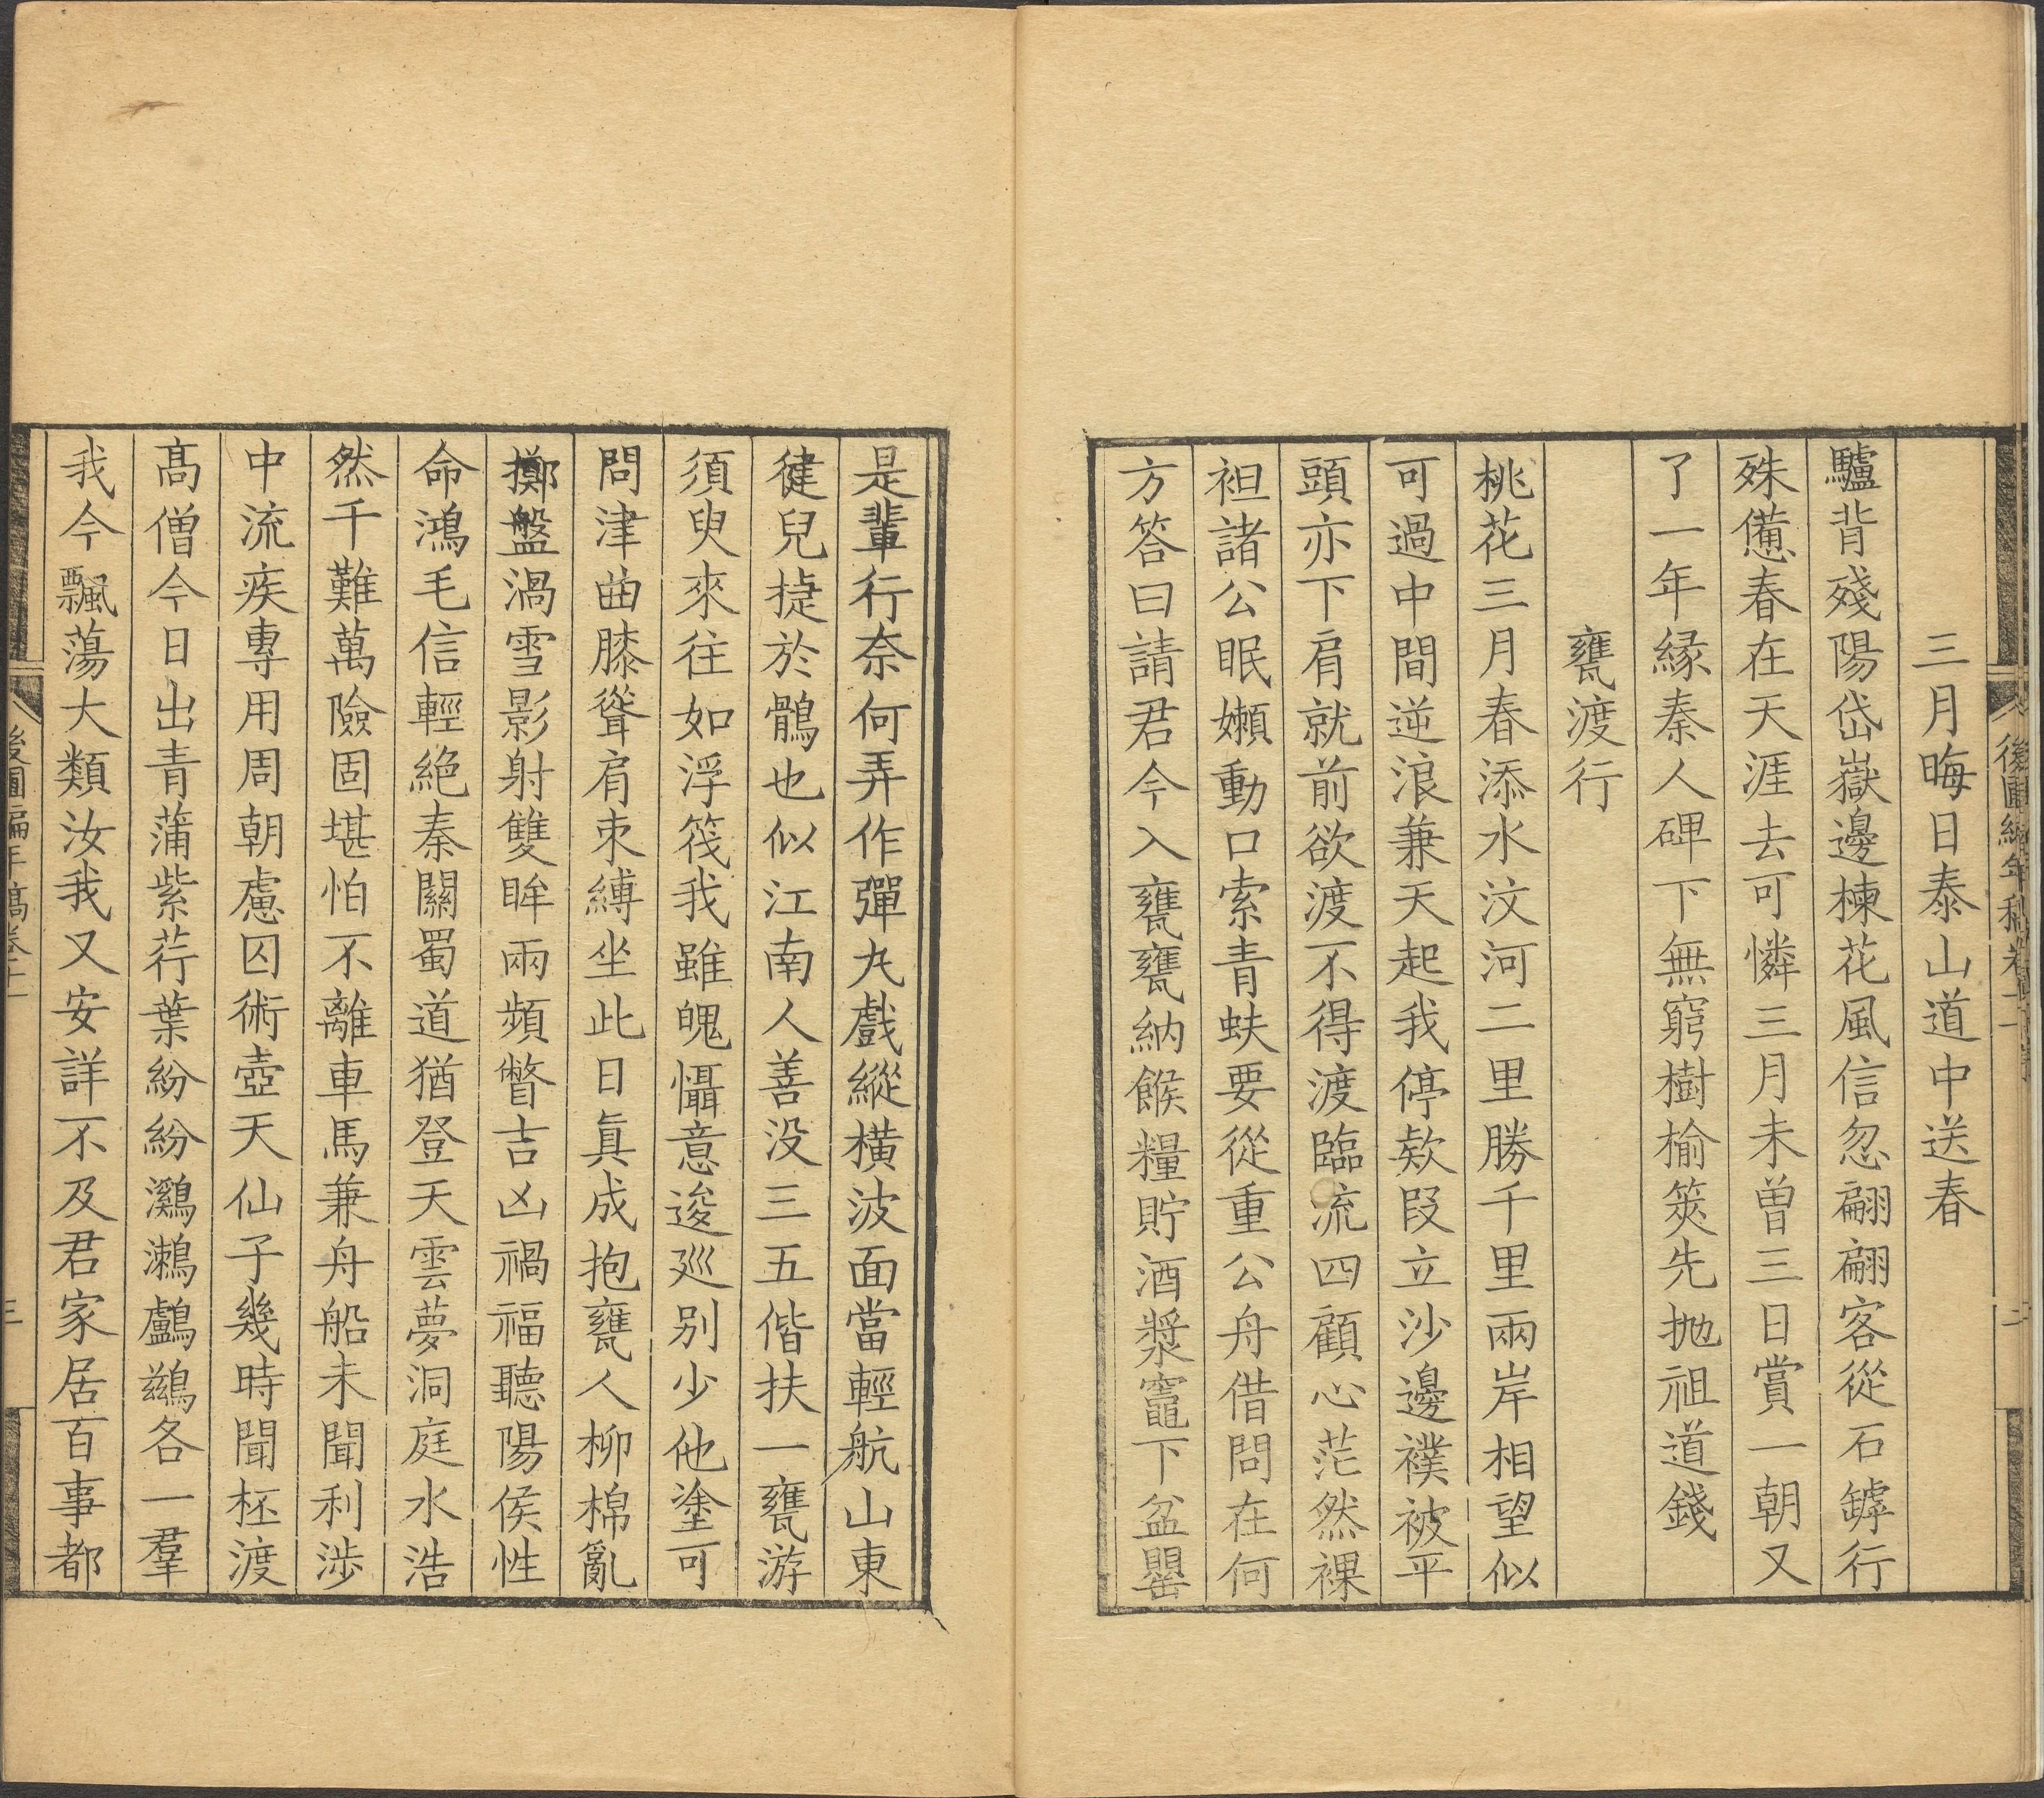 後圃編年稿卷十一
二
三月晦日泰山道中送春
驢背殘陽岱嶽邊楝花風信忽翩翩客從石罅行
殊憊春在天涯去可憐三月未曾三日賞一朝又
了一年緣秦人碑下無窮樹榆筴先拋祖道錢
甕渡行
桃花三月春添水汶河二里勝千里兩岸相望似
可過中間逆浪兼天起我停欵段立沙邊襆被平
頭亦下肩就前欲渡不得渡臨流四顧心茫然裸
袒諸公眠嬾動口索青蚨要從重公舟借問在何
方答曰請君今入甕甕納餱糧貯酒漿竈下盆罌
是輩行奈何弄作彈丸戲縱橫波面當輕航山東
健兒捷於鶻也似江南人善没三五偕扶一甕游
須臾來往如浮筏我雖魄懾意逡巡别少他塗可
問津曲膝聳肩束縛坐此日眞成抱甕人柳棉亂
擲盤渦雪影射雙眸兩頻瞥吉凶禍福聽陽侯性
命鴻毛信輕絶秦關蜀道猶登天雲夢洞庭水浩
然千難萬險固堪怕不離車馬兼舟船未聞利涉
中流疾專用周朝慮囚術壺天仙子幾時聞杯渡
高僧今日出青蒲紫荇葉紛紛鸂鶒鸕鷀各一羣
我今飄蕩大類汝我又安詳不及君家居百事都
後圃編年稾卷十一
三